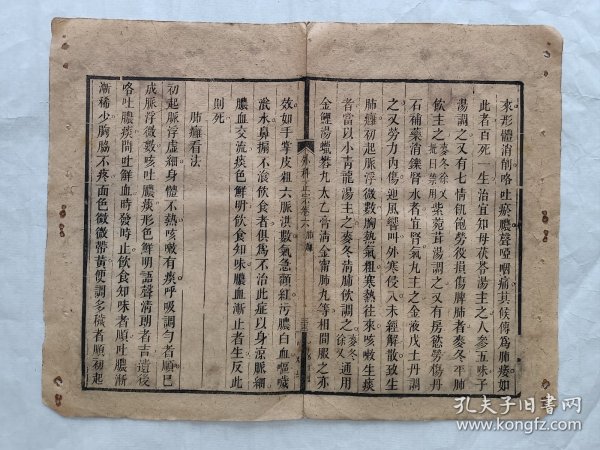 來形體消削咯吐瘀膿聲啞咽痛其候傳爲肺痿如
此者百死一生治宜知母茯苓湯主之人參五味子
湯調之又有七情飢飽勞役損傷脾肺者麥冬平肺
飲主之麥冬徐又批曰禁用紫菀茸湯調之又有房慾勞傷丹
石補藥消鑠腎水者宜腎氣丸主之金液戊土丹調
之又勞力內傷迎風響叫外寒侵入未經解散致生
肺癰初起脈浮微數胸熱氣粗寒熱往來咳嗽生痰
者當以小青龍湯主之麥冬清肺飲調之徐又麥冬通用
金鯉湯蠟礬丸太乙膏清金甯肺丸等相間服之亦
外科正宗卷六 肺癰
效如手掌皮粗六脈洪數氣急顴紅污膿白血嘔噦
瀊水鼻搧不滾飲食者俱爲不治此症以身凉脈細
膿血交流痰色鮮明飲食知味膿血漸止者生反此
則死
肺癰看法
初起脈浮虛細身體不熱咳嗽有痰呼吸調勻者順已
成脈浮微數咳吐膿痰形色鮮明語聲清朗者吉潰後
咯吐膿痰間吐鮮血時發時止飲食知味者順吐膿漸
漸稀少胸脇不疼面色微微帶黃便調多穢者順初起
孔夫子旧书网
www.kongfz.com